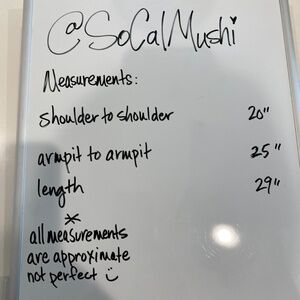 @SoCalMushi
Measurements:
shoulder to shoulder 20"
armpit to armpit 25"
length 29"
*
all measurements
are approximate
not perfect